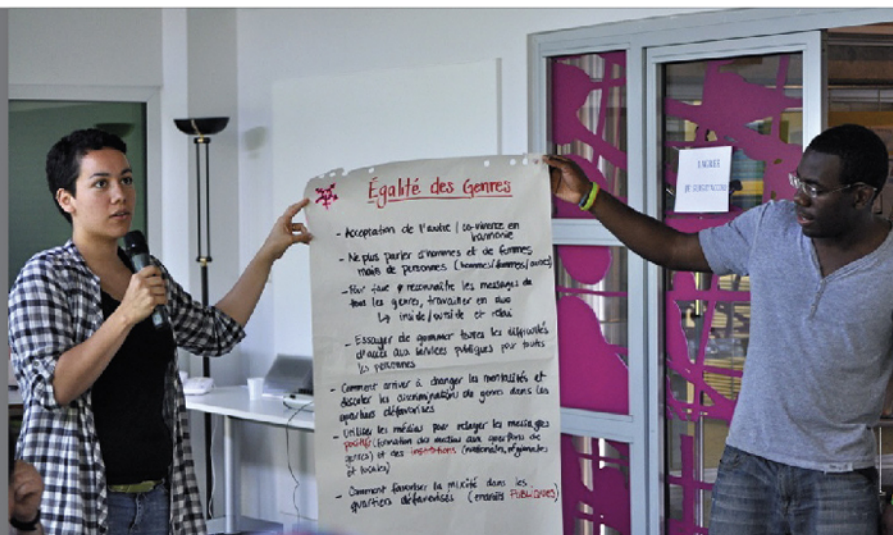 Égalité des Genres
- Acceptation de l'autre / co-vivence en
harmonie
- Ne plus parler d'hommes et de femmes
mais de personnes (hommes/femmes/autres)
- Pour faire reconnaître les messages de
tous les genres, travailler en duo
↳ inside/outside et relai
- Essayer de gommer toutes les difficultés
d'accès aux services publiques pour toutes
les personnes
- Comment arriver à changer les mentalités et
discuter les discriminations de genre dans les
quartiers défavorisés
- Utiliser les médias pour relayer les messages
positifs (formation des médias aux questions de
genres) et des institutions (nationales, régionales
et locales)
- Comment favoriser la mixité dans les
quartiers défavorisés (endroits PUBLIQUES)